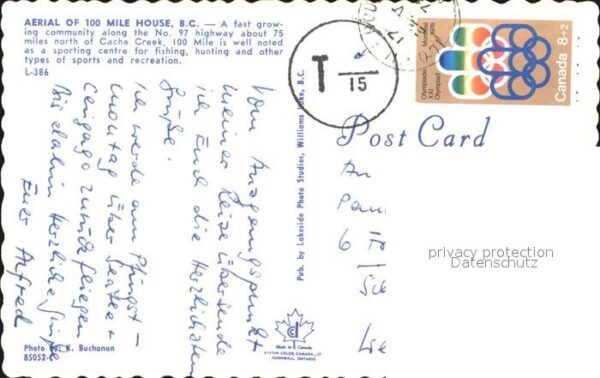 AERIAL OF 100 MILE HOUSE, B.C. — A fast grow-
ing community along the No. 97 highway about 75
miles north of Cache Creek, 100 Mile is well noted
as a sporting centre for fishing, hunting and other
types of sports and recreation.
L-386
T
15
Olympiade XXI Olympiad
Montréal 1976
Canada 8+2
Post Card
Vom Ausgangspunkt
meiner Reise übersende
ich Euch die herzlichsten
Grüße.
Ich werde am Pfingst-
montag über Seattle +
Chicago zurückfliegen
Bis dahin herzliche Grüße
Euer Alfred
Pub. by Lakeside Photo Studios, Williams Lake, B.C.
An
6
privacy protection
Datenschutz
Made in Canada
Photo by: K. Buchanan
85052-C